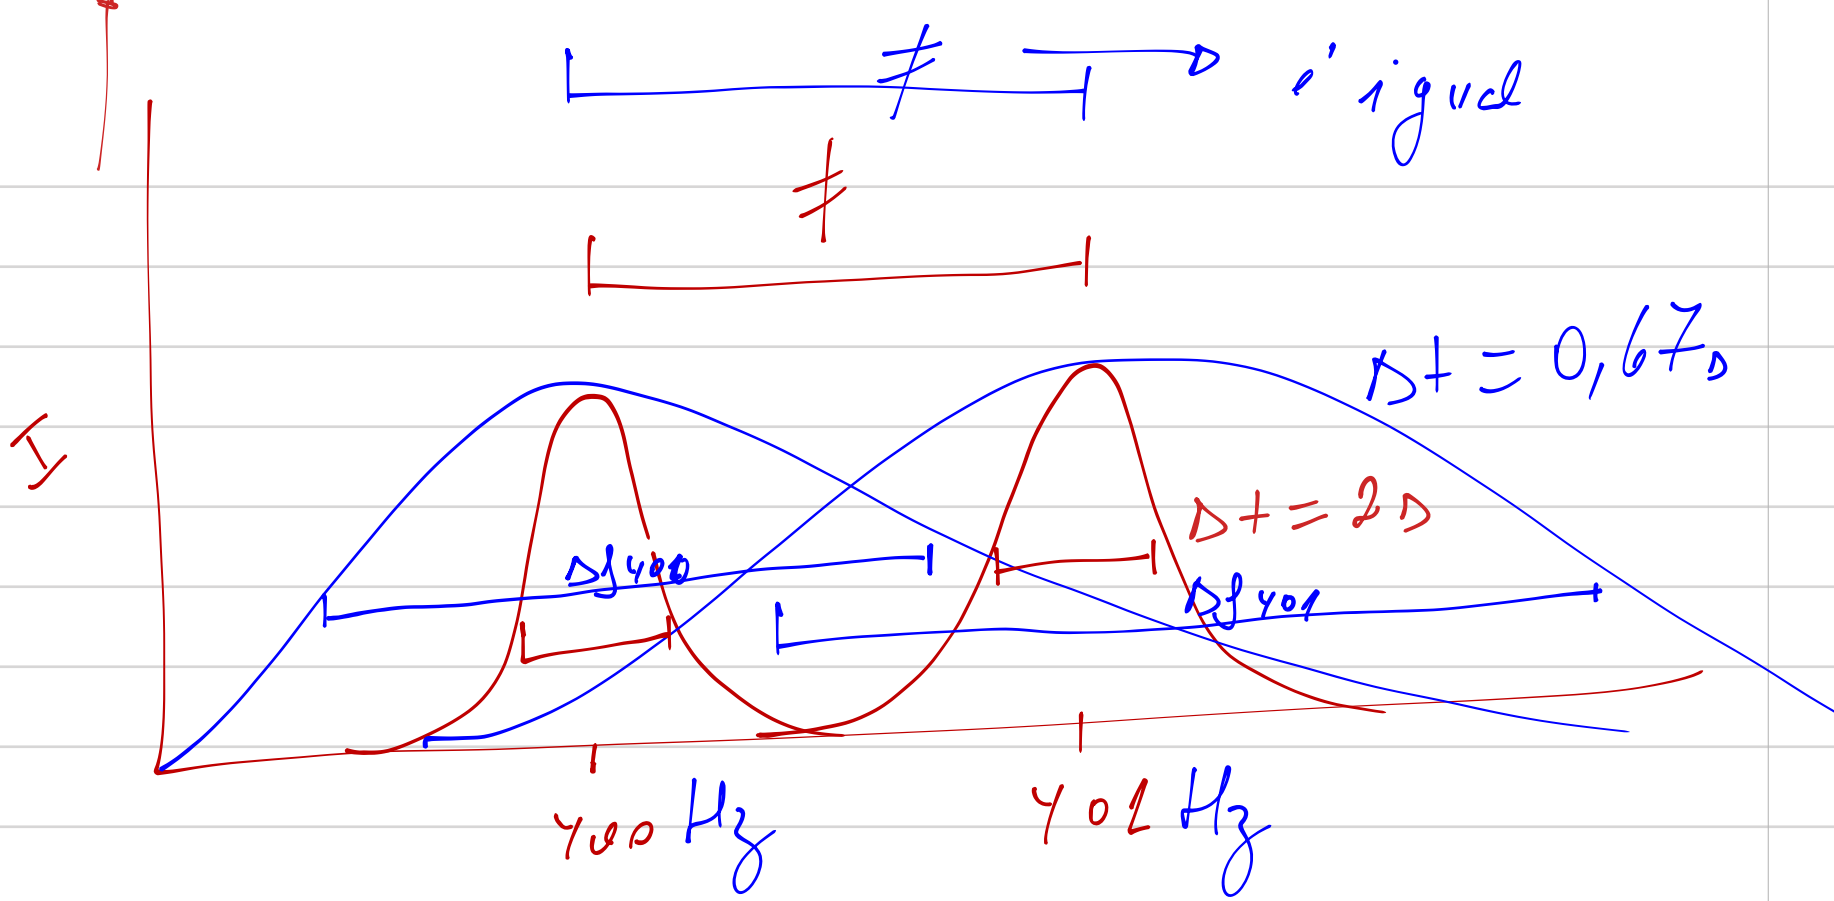 ≠ → é igual
≠
Δt = 0,67s
I
Δt = 2s
Δf400
Δf401
400 Hz 401 Hz